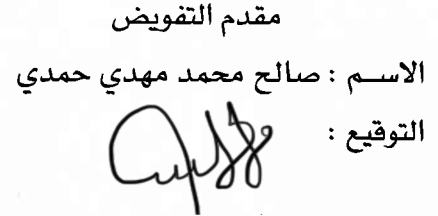 مقدم التفويض
الاســم : صالح محمد مهدي حمدي
التوقيع :